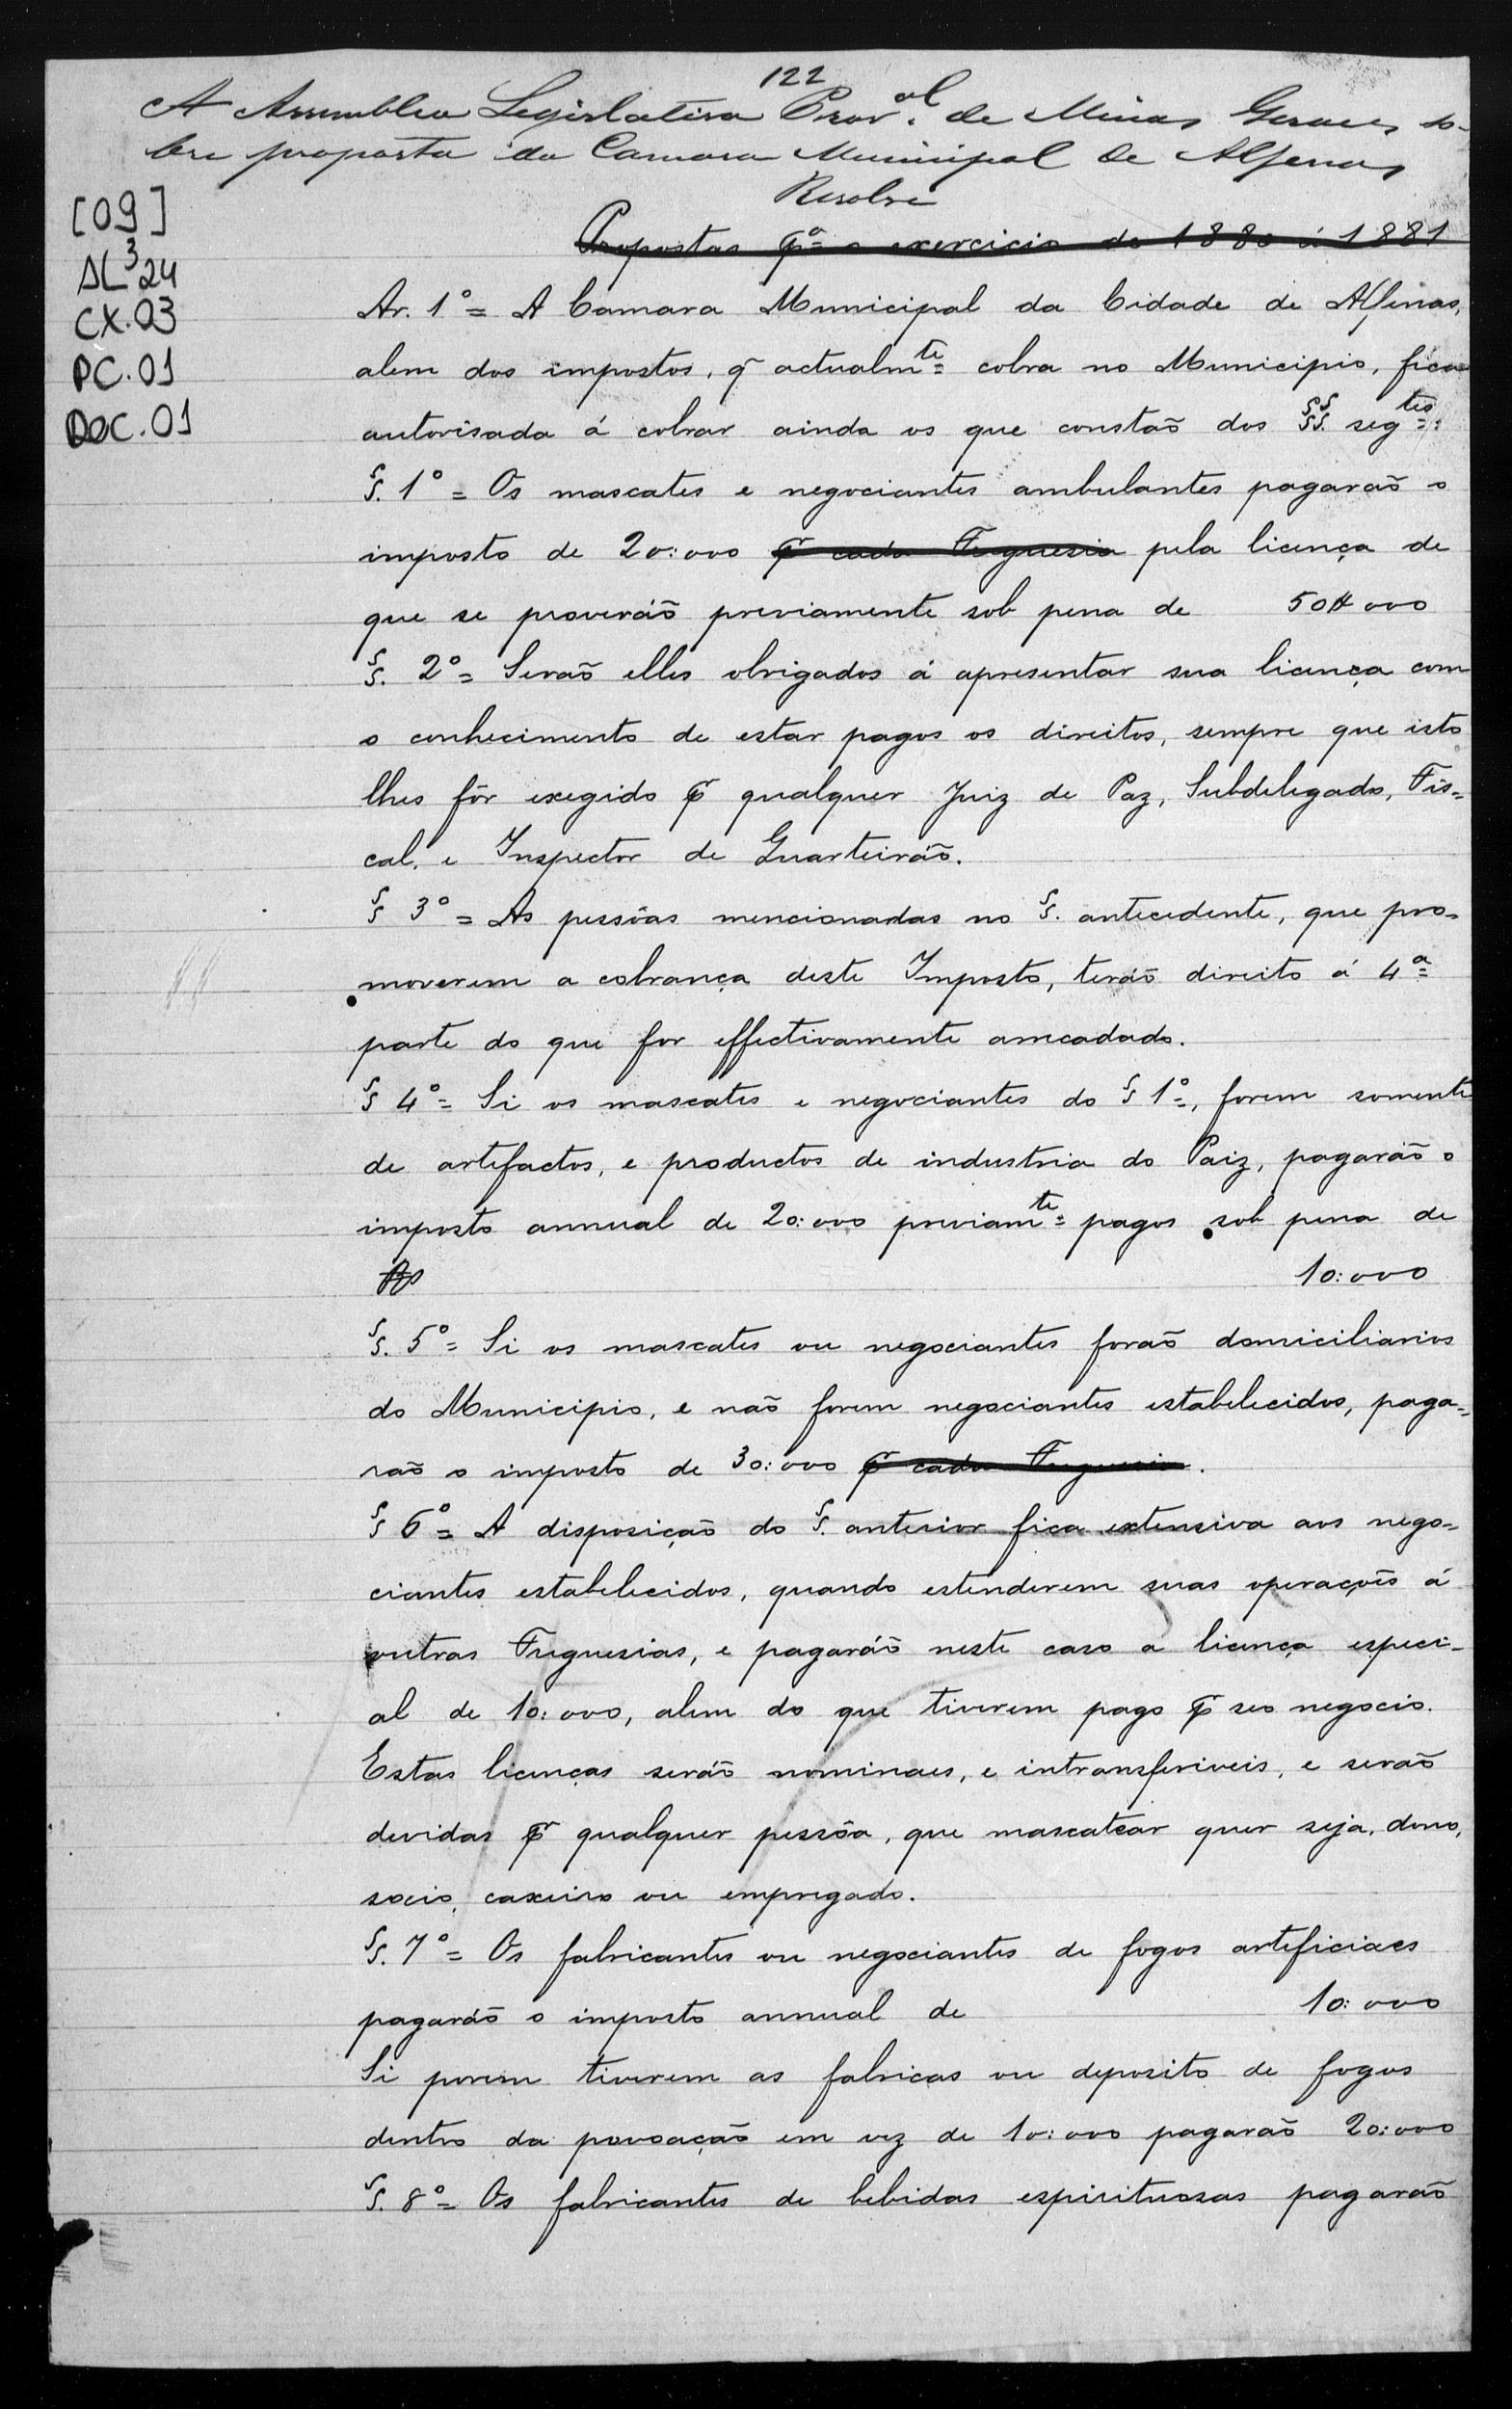 122
A Assemblea Legislativa Prov.al de Minas Geraes so-
bre proposta da Camara Municipal de Alfenas
Resolve
Propostas pª o exercicio de 1880 á 1881
[09]
AL³24
CX.03
PC.01
DOC.01
Ar. 1º = A Camara Municipal da Cidade de Alfenas,
alem dos impostos, q̃ actualmte cobra no Municipio, fica
autorisada á cobrar ainda os que constão dos §§. segtes:
§. 1º = Os mascates e negociantes ambulantes pagarão o
imposto de 20:000 pr cada Freguesia pela licença de
que se proverão previamente sob pena de 50$000
§. 2º = Serão elles obrigados á apresentar sua licença com
o conhecimento de estar pagos os direitos, sempre que isto
lhes fôr exegido pr qualquer Juiz de Paz, Subdelegado, Fis=
cal, e Inspector de Quarteirão.
§ 3º = As pessôas mencionadas no §. antecedente, que pro-
moverem a cobrança deste Imposto, terão direito á 4ª
parte do que for effectivamente arrecadado.
§ 4º = Si os mascates e negociantes do § 1º, forem somente
de artefactos, e productos de industria do Paiz, pagarão o
imposto annual de 20:000 previamte pagos sob pena de
10:000
§. 5º = Si os mascates ou negociantes forão domiciliarios
do Municipio, e não forem negociantes estabelecidos, paga-
rão o imposto de 30:000 pr cada Freguesia.
§ 6º = A disposição do §. anterior fica extensiva aos nego-
ciantes estabelecidos, quando estenderem suas operações á
outras Freguesias, e pagarão neste caso a licença especi-
al de 10:000, alem do que tiverem pago pr seo negocio.
Estas licenças serão nominaes, e intransferiveis, e serão
devidas pr qualquer pessôa, que mascatear quer seja, dono,
socio, caxeiro ou empregado.
§. 7º = Os fabricantes ou negociantes de fogos arteficiaes
pagarão o imposto annual de 10:000
Si porem tiverem as fabricas ou deposito de fogos
dentro da povoação em vez de 10:000 pagarão 20:000
§. 8º = Os fabricantes de bebidas espirituosas pagarão